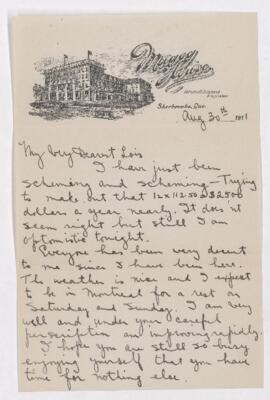 Magog
House
Sherbrooke, Que.
Aug 30th 1911
My Very Dearest Lois
I have just been
schemeing and scheming - Trying
to make out that 12 x 112.50 = $2500
dollars a year nearly. It does n't
seem right but still I am
optomistic tonight.
Everyone has been very decent
to me since I have been here.
The weather is nice and I expect
to be in Montreal for a rest on
Saturday and Sunday. I am very
well and under your careful
perscription am improving rapidly.
I hope you are still so busy
enjoying yourself that you have
time for nothing else.